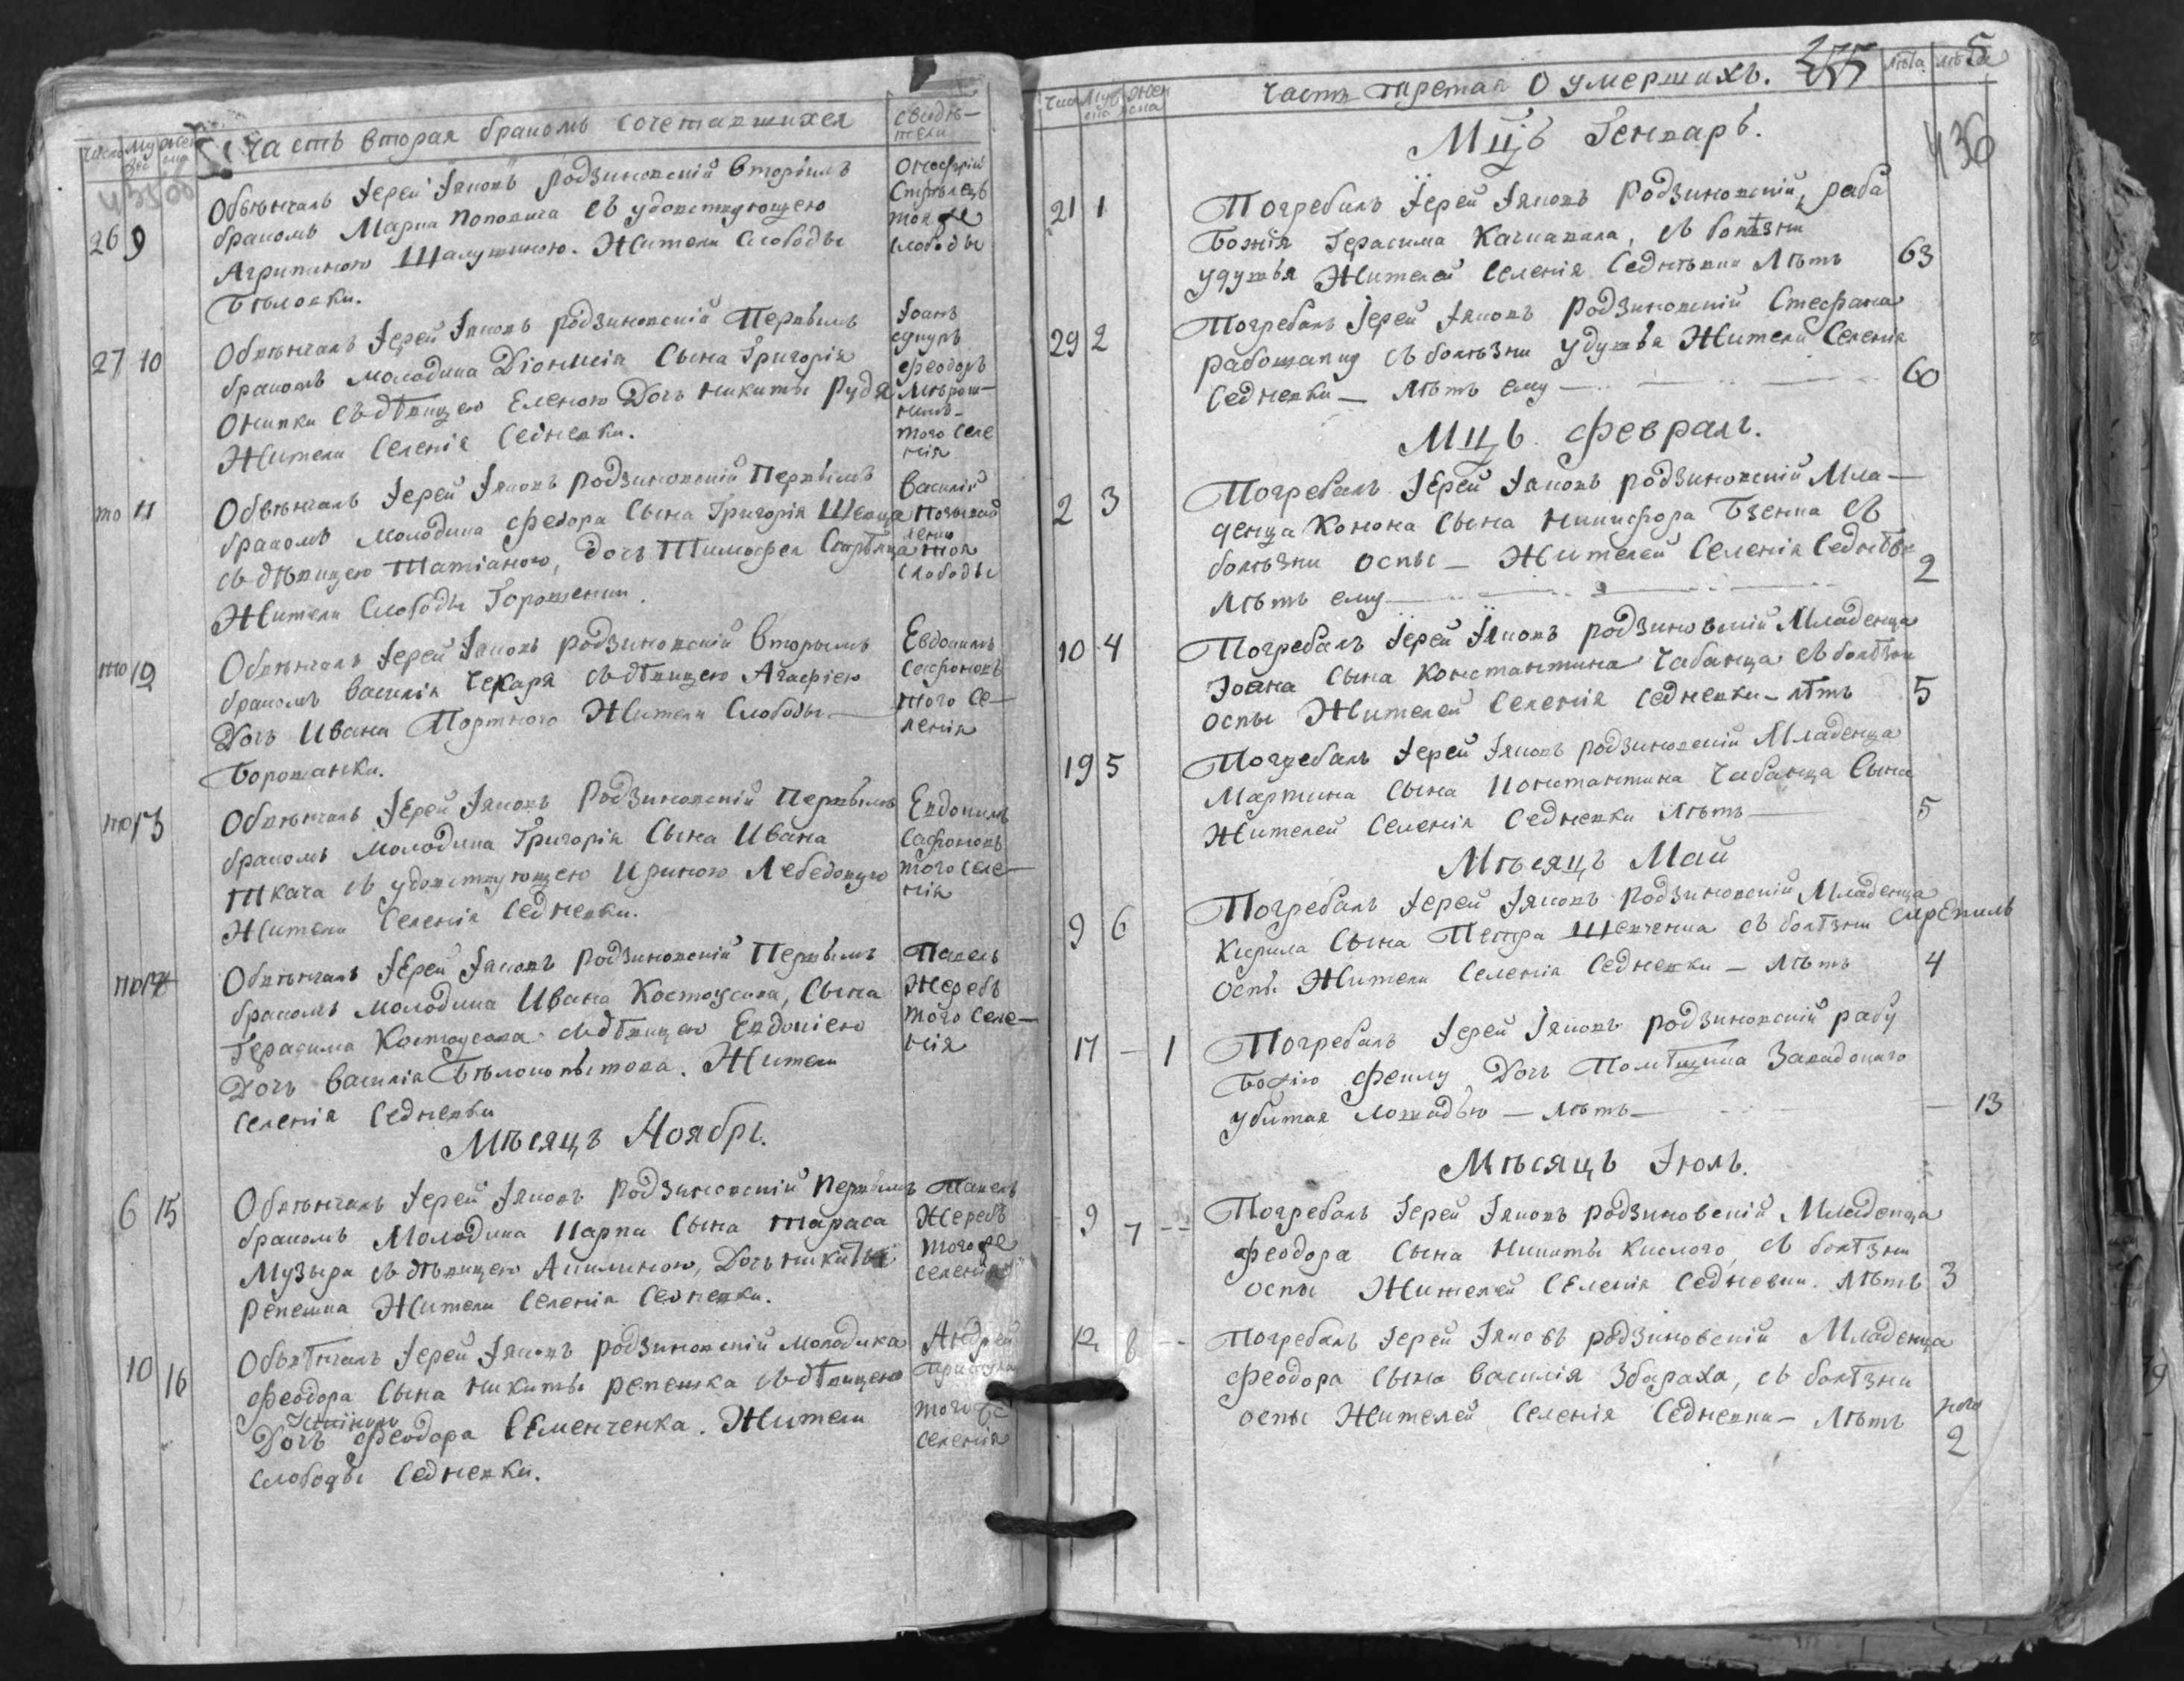 Часть вторая бракомъ сочетавшихся
свидѣ-
тели
435об
26 9
Обвѣнчалъ Іерей Іяковъ родзиновскій вторымъ
бракомъ Марка Поповича съ удовствующею
Агрипиною Шалушиною. Жители Слободы
Бѣловки.
Онофрій
Стрѣлецъ
тояже
слободы
27 10
Обвѣнчалъ Іерей Іяковъ родзиновскій Первымъ
бракомъ молодика Діонисія Сына Григорія
Онипки съ дѣвицею Еленою Дочь никиты Рудя
Жители Селенія Седневки.
Іоанъ
феодоръ
того селе
нія
то 11
Обвѣнчалъ Іерей Іяковъ родзиновскій Первымъ
бракомъ молодика федора Сына Григорія Шевца
съ дѣвицею Татіаною, дочь Тимофея Стрѣлца
Жители Слободы
Василій
тоя
слободы
то 12
Обвѣнчалъ Іерей Іяковъ родзиновскій вторымъ
бракомъ василія Чекаря съ дѣвицею Агафіею
Дочь Ивана Портного Жители Слободы
Боромянки.
Евдокимъ
Сафоновъ
того се-
ленія
то 13
Обвѣнчалъ Іерей Іяковъ Родзиновскій Первымъ
бракомъ молодика Григорія Сына Ивана
Ткача съ удовствующею Ириною Лебедовую
Жители Селенія Седневки.
Евдокимъ
Сафоновъ
того селе-
нія
то 14
Обвѣнчалъ Іерей Іяковъ Родзиновскій Первымъ
бракомъ молодика Ивана Костоусова, Сына
Герасима Костоусова съ дѣвицею Евдокіею
Дочь василія Бѣлокопытова. Жители
Селенія Седневки
Павелъ
Жеребъ
того селе-
нія
Мѣсяцъ Ноябрь.
6 15
Обвѣнчалъ Іерей Іяковъ Родзиновскій Первымъ
бракомъ Молодика Карпа Сына тараса
Музыра съ дѣвицею Акилиною, Дочь никиты
репешка Жители Селенія Седневки.
Павелъ
Жеребъ
тогоже
селенія
10 16
Обвѣнчалъ Іерей Іяковъ родзиновскій молодика
феодора Сына никиты репешка съ дѣвицею
Дочь феодора Семенченка. Жители
слободы Седневки.
Андрей
тогоже
селенія
часть третая О умершихъ.
лѣта
5
436
Мцъ Генварь.
21 1
Погребалъ Іерей Іяковъ Родзиновскій, раба
Божія Герасима Качкавала, съ болѣзни
удушья Жителей Селенія Седнѣвки Лѣтъ 63
29 2
Погребалъ Іерей Іяковъ родзиновскій Стефана
съ болѣзни удушья Жители Селенія
Седневки — Лѣтъ ему — 60
Мцъ февраль.
2 3
Погребалъ Іерей Іяковъ родзиновскій Мла-
денца Конона Сына никифора Бзенка съ
болѣзни оспы — Жителей Селенія Седнѣвки
Лѣтъ ему — 2
10 4
Погребалъ Іерей Іяковъ родзиновскій Младенца
Іоана Сына Константина Чабанца съ болѣзни
оспы Жителей Селенія седневки — лѣтъ 5
19 5
Погребалъ Іерей Іяковъ родзиновскій Младенца
Мартина Сына Константина Чабанца Сына
Жителей Селенія Седневки Лѣтъ — 5
Мѣсяцъ Май
9 6
Погребалъ Іерей Іяковъ Родзиновскій Младенца
Кирила Сына Петра Шевченка съ болѣзни
Оспы Жители Селенія Седневки — Лѣтъ 4
17 — 1
Погребалъ Іерей Іяковъ родзиновскій рабу
Божію Феклу Дочь Помѣщика
убитая лошадью — лѣтъ — 13
Мѣсяцъ Іюль.
9 7 —
Погребалъ Іерей Іяковъ родзиновскій Младенца
феодора Сына Никиты Кислого, съ болѣзни
оспы Жителей Селенія Седневки. Лѣтъ 3
12 8 —
Погребалъ Іерей Іяковъ родзиновскій Младенца
феодора Сына василія Збараха, съ болѣзни
оспы Жителей Селенія Седневки — Лѣтъ
2